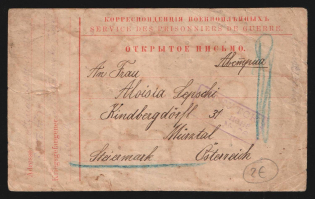 КОРРЕСПОНДЕНЦІЯ ВОЕННОПЛѢННЫХЪ
SERVICE DES PRISONNIERS DE GUERRE
ОТКРЫТОЕ ПИСЬМО.
Австрия
An Frau
Aloisia
Kindbergdörfl 31
Mürztal
Steiermark Österreich
2€